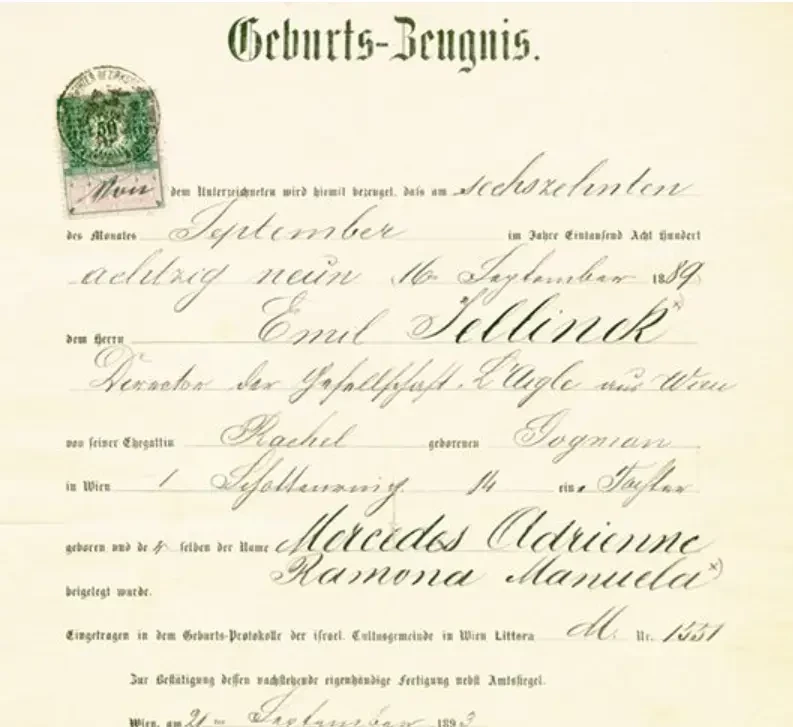 Geburts-Zeugnis.
50
Von dem Unterzeichneten wird hiemit bezeuget, dass am sechszehnten
des Monates September im Jahre Eintausend Acht Hundert
achtzig neun 16 September 1889
dem Herrn Emil Jellinek x)
Director der Gesellschaft L'Aigle aus Wien
von seiner Ehegattin Rachel geborenen Gogman
in Wien 1 Schottenring 14 eine Tochter
geboren und der selben der Name Mercedes Adrienne
Ramona Manuela x)
beigelegt wurde.
Eingetragen in dem Geburts-Protokolle der israel. Cultusgemeinde in Wien Littera M. Nr. 1551
Zur Bestätigung dessen nachstehende eigenhändige Fertigung nebst Amtssiegel.
Wien, am 21 September 1893